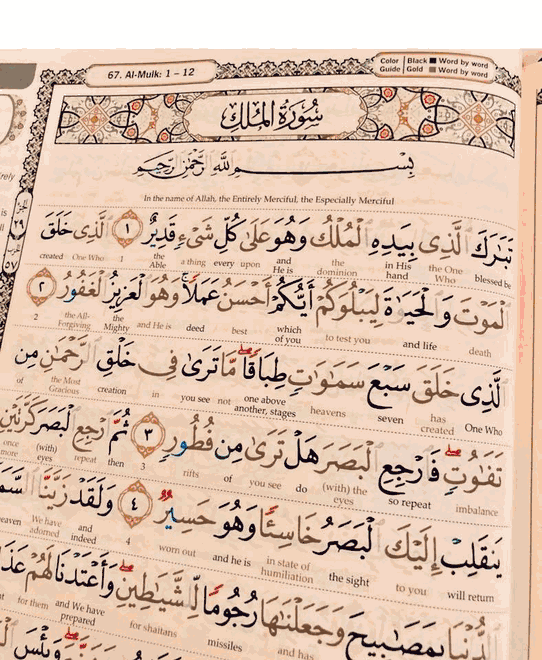 67. Al-Mulk: 1 – 12
Color Guide | Black ■ Word by word
Gold ■ Word by word
سُورَةُ الْمُلْكِ
بِسْمِ اللَّهِ الرَّحْمَٰنِ الرَّحِيمِ
In the name of Allah, the Entirely Merciful, the Especially Merciful
تَبَٰرَكَ الَّذِى بِيَدِهِ الْمُلْكُ وَهُوَ عَلَىٰ كُلِّ شَىْءٍ قَدِيرٌ ١ الَّذِى خَلَقَ
blessed be the One Who in His Hand the dominion and He is upon every a thing the Able 1 One Who created
الْمَوْتَ وَالْحَيَوٰةَ لِيَبْلُوَكُمْ أَيُّكُمْ أَحْسَنُ عَمَلًا وَهُوَ الْعَزِيزُ الْغَفُورُ ٢
death and life to test you which of you best deed and He is the Mighty the All-Forgiving 2
الَّذِى خَلَقَ سَبْعَ سَمَٰوَٰتٍ طِبَاقًا مَّا تَرَىٰ فِى خَلْقِ الرَّحْمَٰنِ مِن
One Who has created seven heavens one above another, stages not you see in creation the Most Gracious of
تَفَٰوُتٍ فَارْجِعِ الْبَصَرَ هَلْ تَرَىٰ مِن فُطُورٍ ٣ ثُمَّ ارْجِعِ الْبَصَرَ كَرَّتَيْنِ
imbalance so repeat (with) the eyes do you see of rifts 3 then repeat (with) eyes once more
يَنقَلِبْ إِلَيْكَ الْبَصَرُ خَاسِئًا وَهُوَ حَسِيرٌ ٤ وَلَقَدْ زَيَّنَّا
will return to you the sight in state of humiliation and he is worn out 4 and indeed We have adorned
الدُّنْيَا بِمَصَٰبِيحَ وَجَعَلْنَٰهَا رُجُومًا لِّلشَّيَٰطِينِ وَأَعْتَدْنَا لَهُمْ
and has missiles for shaitans and We have prepared for them